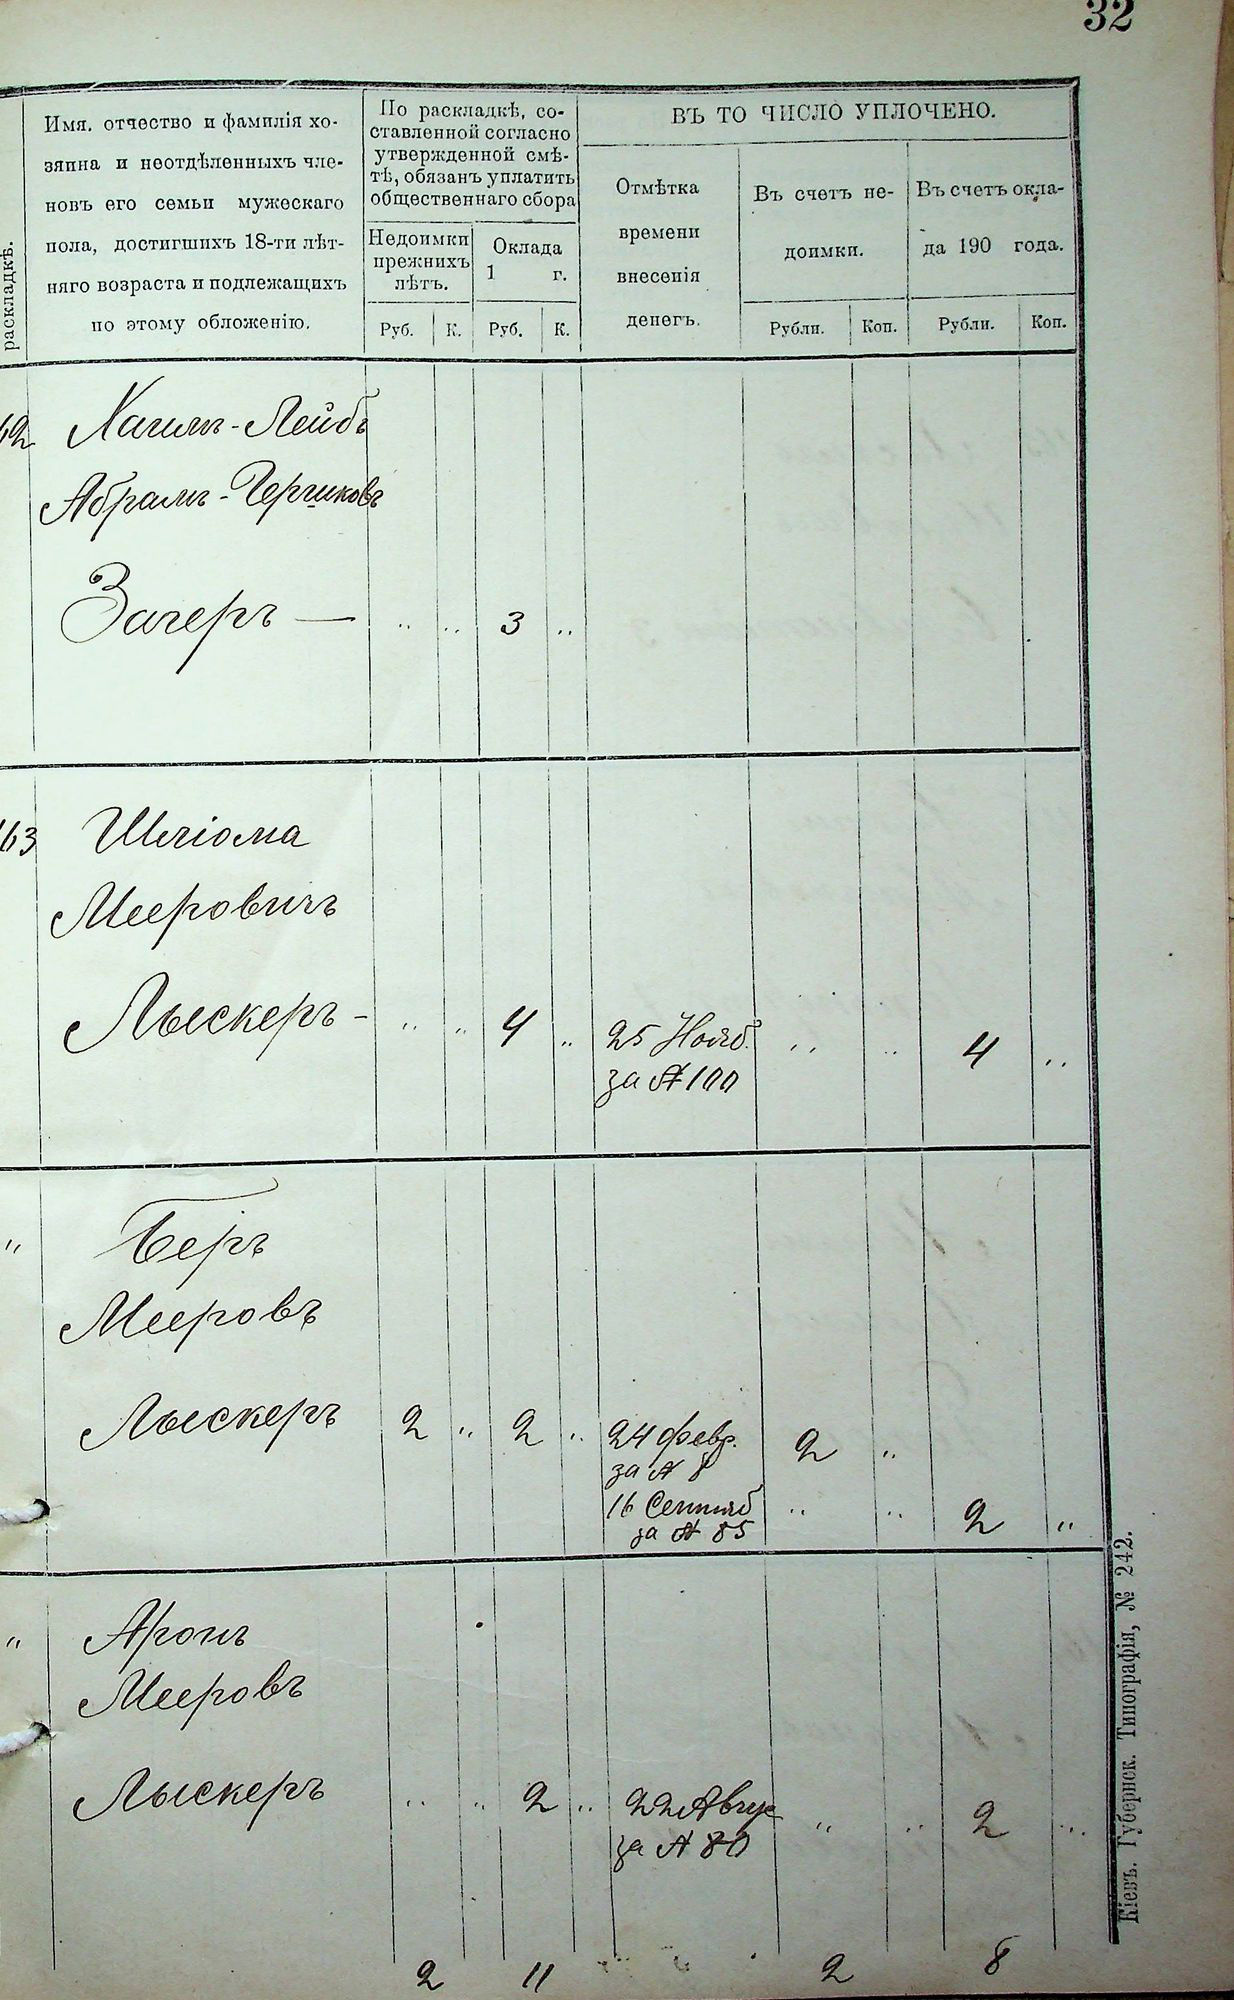 32
раскладкѣ.
Имя, отчество и фамилія хо-
зяина и неотдѣленныхъ чле-
новъ его семьи мужескаго
пола, достигшихъ 18-ти лѣт-
няго возраста и подлежащихъ
по этому обложенію.
По раскладкѣ, со-
ставленной согласно
утвержденной смѣ-
тѣ, обязанъ уплатить
общественнаго сбора
Недоимки
прежнихъ
лѣтъ.
Оклада
1 г.
Руб. К. Руб. К.
ВЪ ТО ЧИСЛО УПЛОЧЕНО.
Отмѣтка
времени
внесенія
денегъ.
Въ счетъ не-
доимки.
Рубли. Коп.
Въ счетъ окла-
да 190 года.
Рубли. Коп.
62 Хаимъ-Лейбъ
Абрамъ-Гершковъ
Загеръ — " " 3 "
163 Шліома
Мееровичъ
Лыскеръ - " " 4 " 25 Нояб. " " 4 "
за № 100
" Беръ
Мееровъ
Лыскеръ 2 " 2 " 24 февр. 2 "
за № 8
16 Сентяб " " 2 "
за № 85
" Аронъ
Мееровъ
Лыскеръ " " 2 " 22 Авгус " " 2 "
за № 80
2 11 2 8
Кіевъ. Губернск. Типографія, № 242.